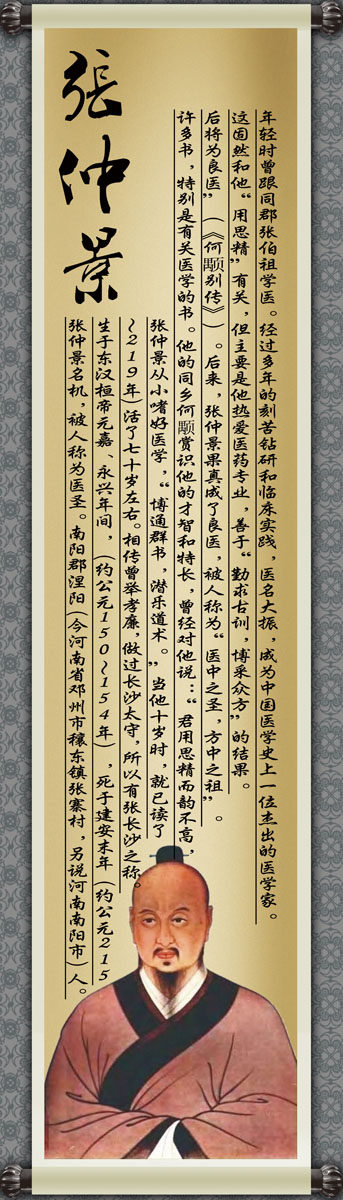 張仲景
张仲景名机，被人称为医圣。南阳郡涅阳（今河南省邓州市穰东镇张寨村，另说河南南阳市）人。
生于东汉桓帝元嘉、永兴年间，（约公元150~154年），死于建安末年（约公元215
~219年）活了七十岁左右。相传曾举孝廉，做过长沙太守，所以有张长沙之称。
张仲景从小嗜好医学，“博通群书，潜乐道术。”当他十岁时，就已读了
许多书，特别是有关医学的书。他的同乡何颙赏识他的才智和特长，曾经对他说：“君用思精而韵不高，
后将为良医”（《何颙别传》）。后来，张仲景果真成了良医，被人称为“医中之圣，方中之祖”。
这固然和他“用思精”有关，但主要是他热爱医药专业，善于“勤求古训，博采众方”的结果。
年轻时曾跟同郡张伯祖学医。经过多年的刻苦钻研和临床实践，医名大振，成为中国医学史上一位杰出的医学家。